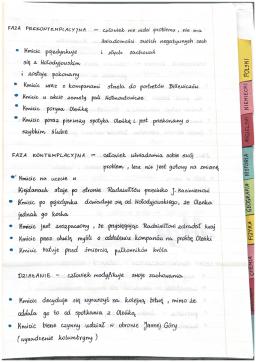 FAZA PREKONTEMPLACYJNA – człowiek nie widzi problemu, nie ma
świadomości swoich negatywnych cech
i złych zachowań
• Kmicic pojedynkuje
się z Wołodyjowskim
i zostaje pokonany
• Kmicic wraz z kompanami strzela do portretów Billewiczów
• Kmicic w akcie zemsty pali Wołmontowicze
• Kmicic porywa Oleńkę
• Kmicic poraz pierwszy spotyka Oleńkę i jest przekonany o
szybkim ślubie
FAZA KONTEMPLACYJNA – człowiek uświadamia sobie swój
problem, lecz nie jest gotowy na zmianę
• Kmicic na uczcie w
Kiejdanach staje po stronie Radziwiłłów przeciwko J. Kazimierzowi
• Kmicic po pojedynku dowiaduje się od Wołodyjowskiego, że Oleńka
jednak go kocha
• Kmicic jest zrozpaczony, że przysięgając Radziwiłłom zdradził kraj
• Kmicic przez chwilę myśli o oddaleniu kompanów na prośbę Oleńki
• Kmicic ratuje przed śmiercią pułkowników króla
DZIAŁANIE – człowiek modyfikuje swoje zachowania
• Kmicic decyduje się wyruszyć na kolejną bitwę, mimo że
oddala go to od spotkania z Oleńką
• Kmicic bierze czynny udział w obronie Jasnej Góry
(wysadzenie kolumbryny)
POLSKI
NIEMIECKI
ANGIELSKI
HISTORIA
GEOGRAFIA
FIZYKA
CHEMIA